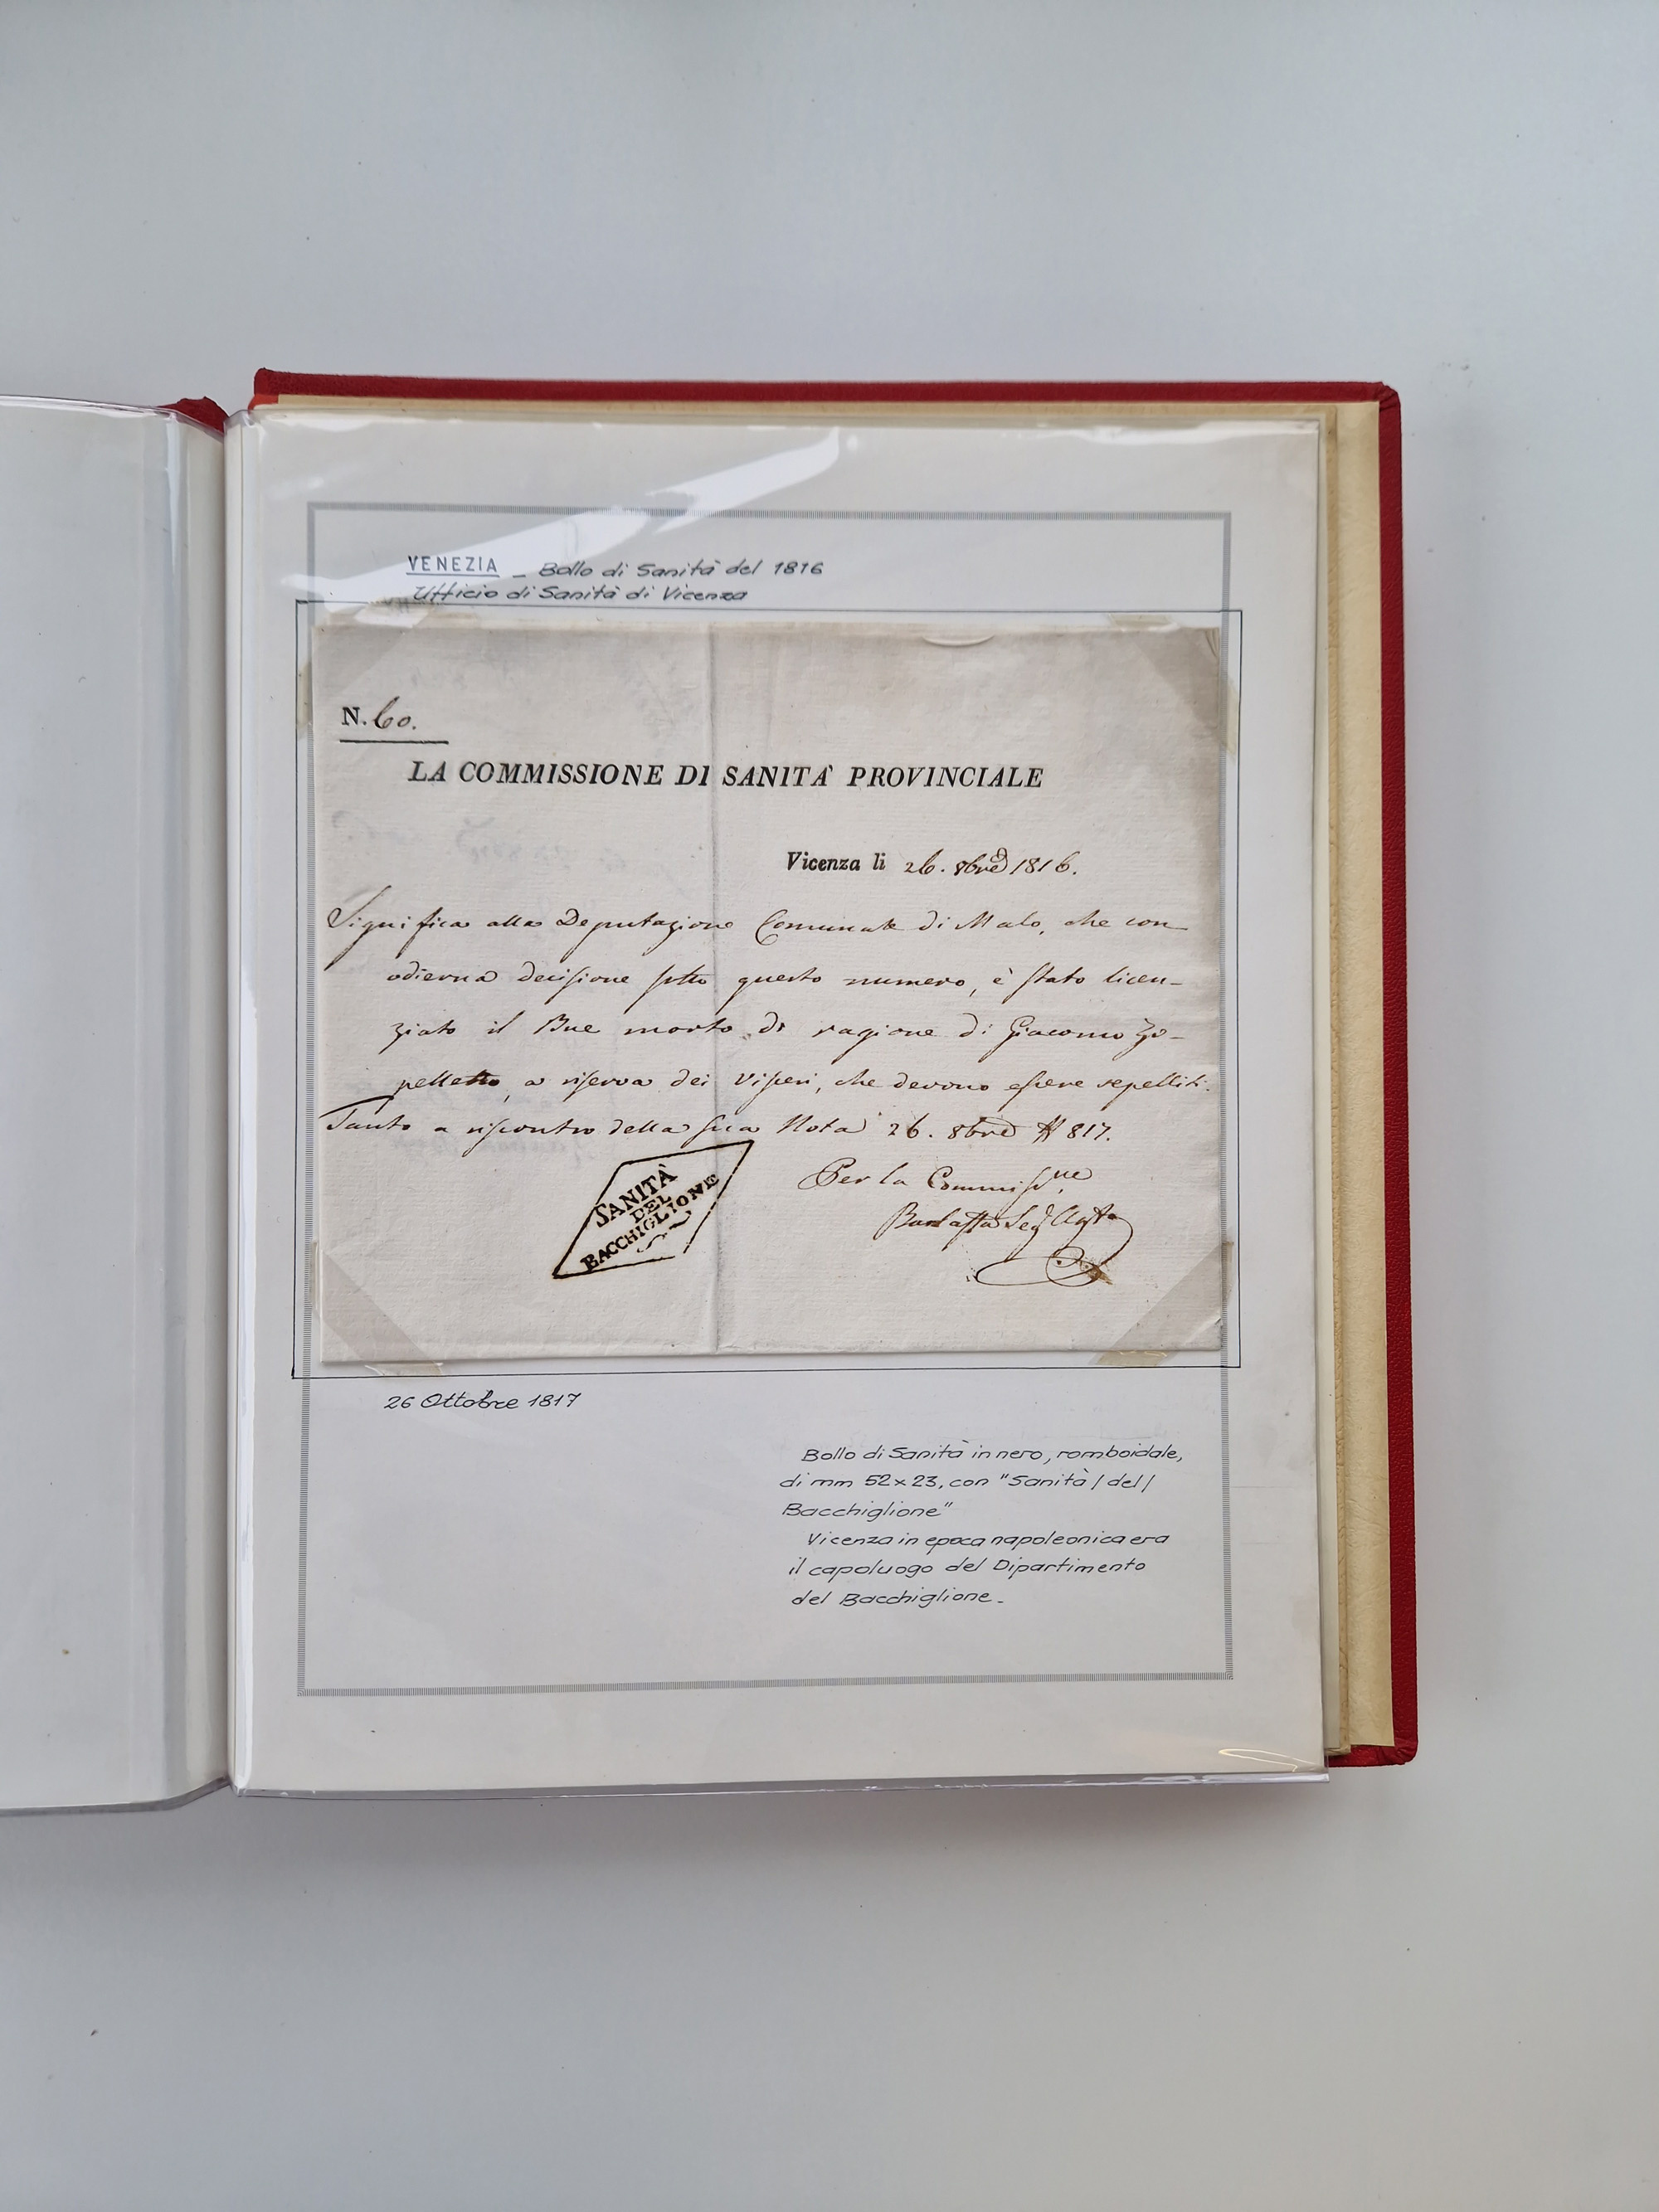 VENEZIA - Bollo di Sanità del 1816
Ufficio di Sanità di Vicenza
N. 60.
LA COMMISSIONE DI SANITA' PROVINCIALE
Vicenza li 26. 8bre 1816.
Significa alla Deputazione Comunale di Malo, che con
odierna decisione sotto questo numero, è stato licen-
ziato il Bue morto di ragione di Giacomo Zo-
pelletto, a riserva dei visceri, che devono essere sepelliti.
Tanto a riscontro della sua Nota 26. 8bre 817.
Per la Commissne
SANITÀ
DEL
BACCHIGLIONE
26 Ottobre 1817
Bollo di Sanità in nero, romboidale,
di mm 52x23, con "Sanità/del/
Bacchiglione"
Vicenza in epoca napoleonica era
il capoluogo del Dipartimento
del Bacchiglione.